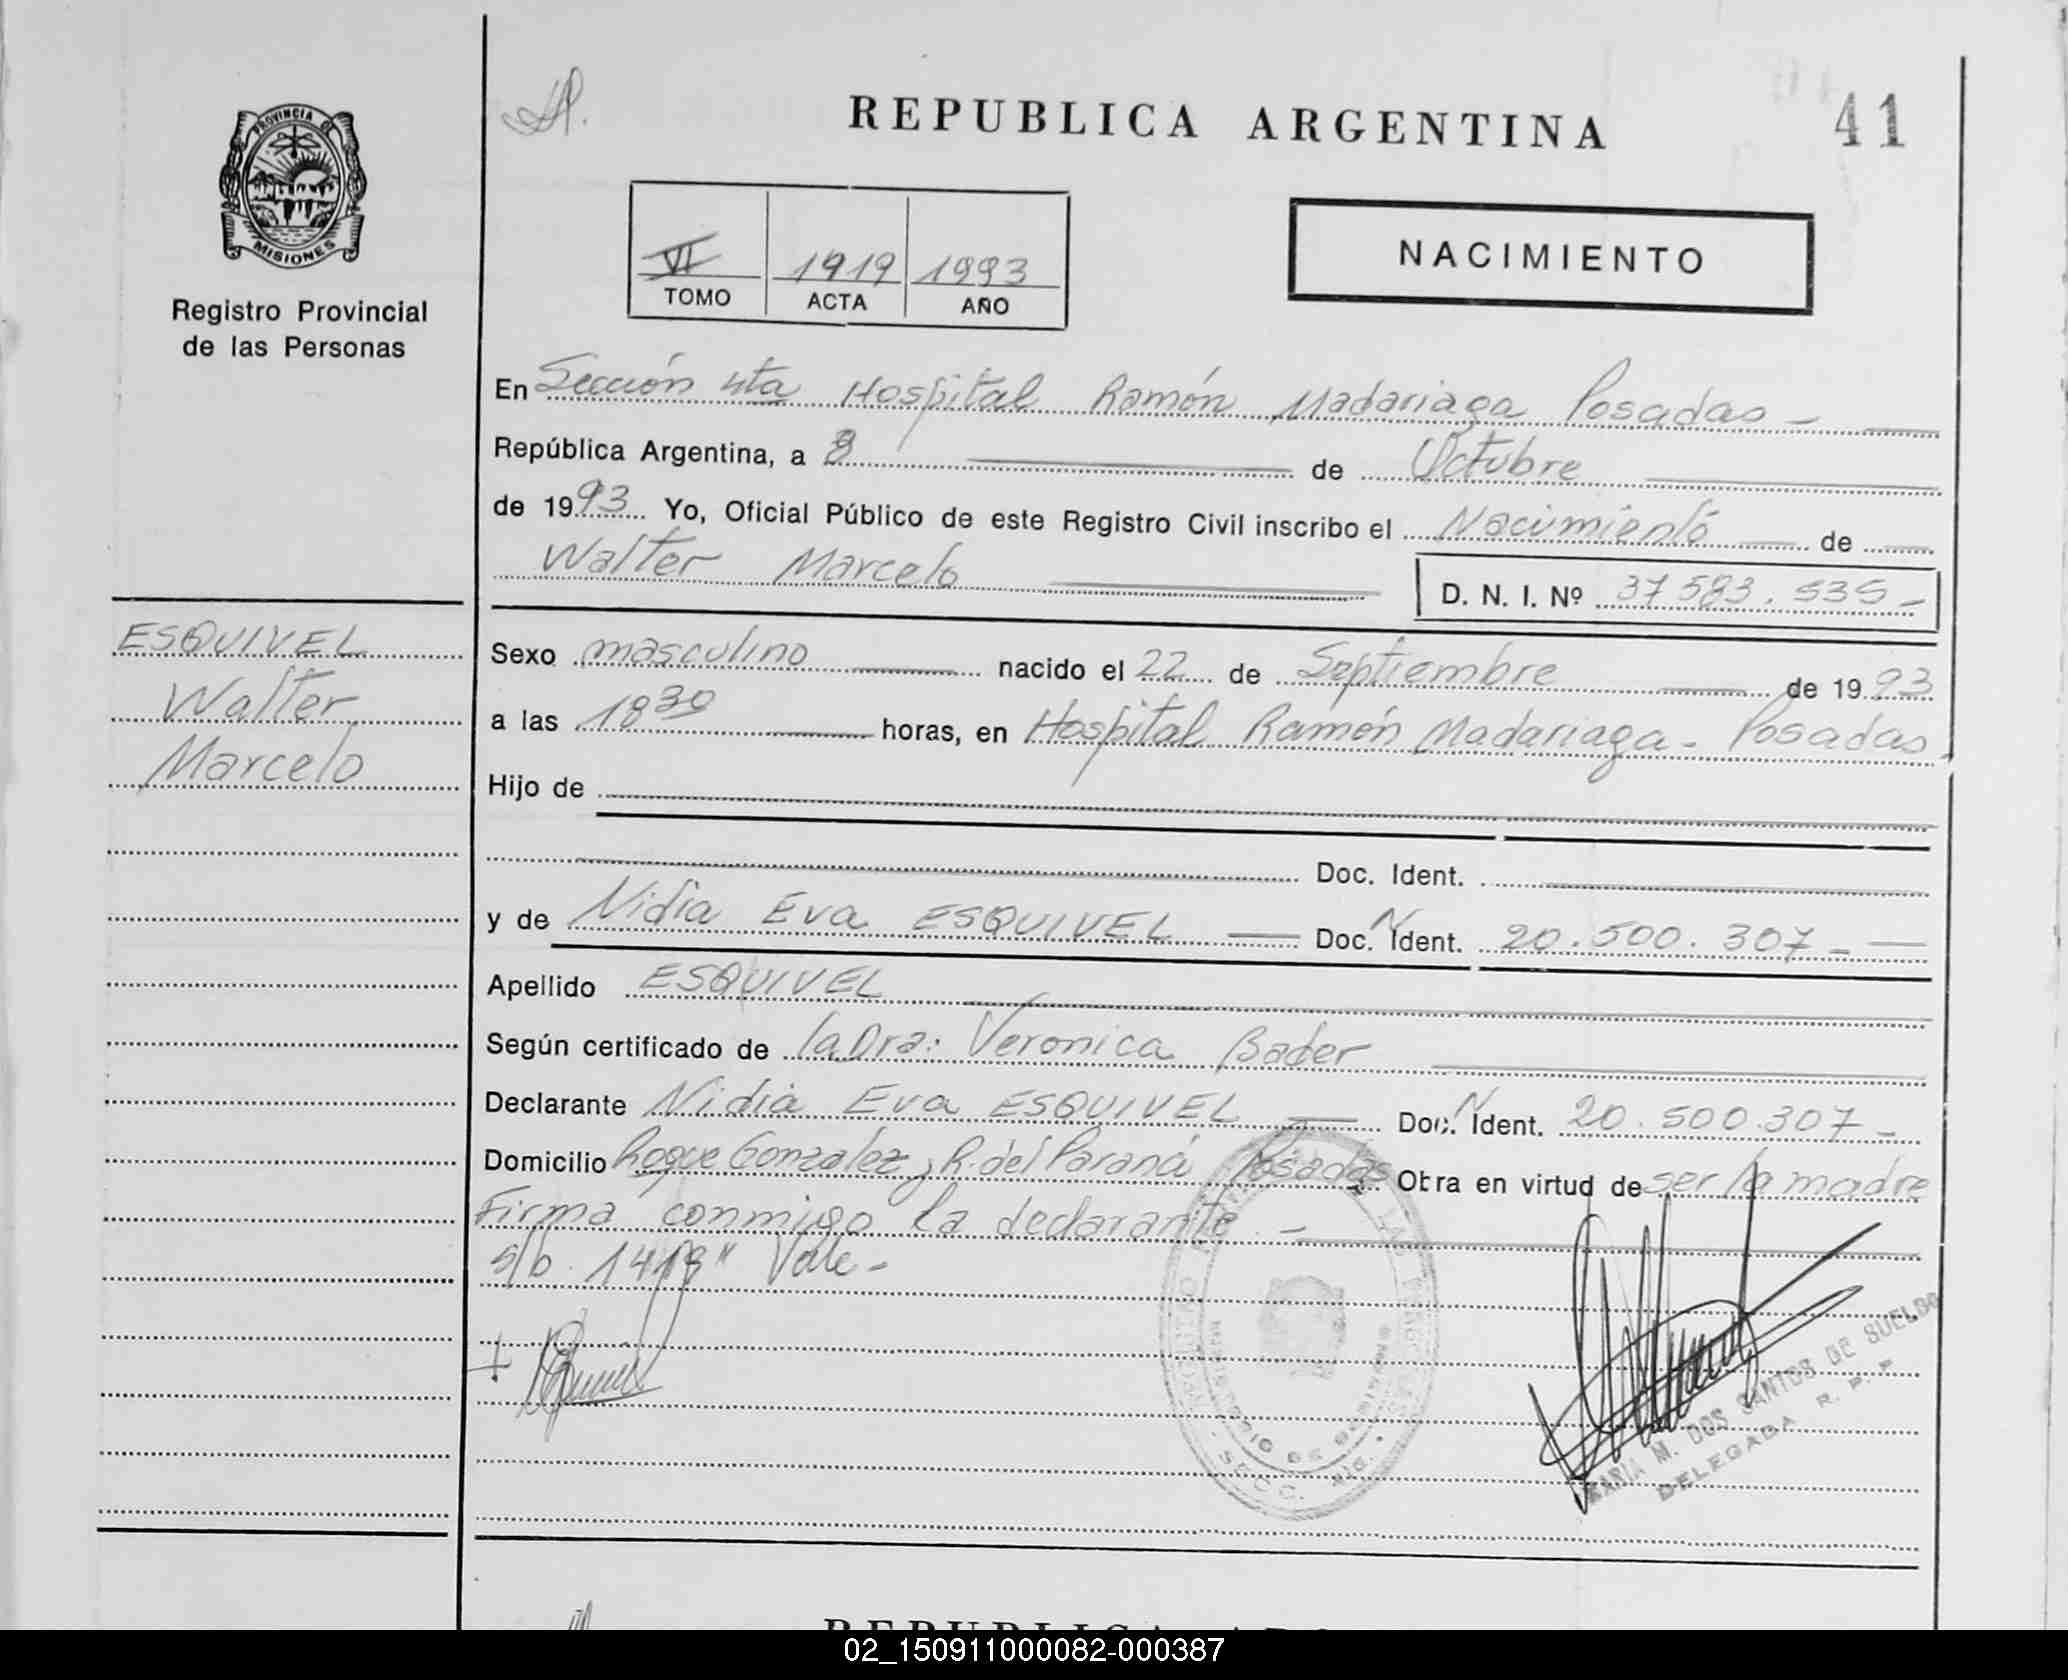 REPUBLICA ARGENTINA
41
PROVINCIA DE
MISIONES
Registro Provincial
de las Personas
VI 1919 1993
TOMO ACTA AÑO
NACIMIENTO
En Sección 4ta Hospital Ramón Madariaga Posadas -
República Argentina, a 8 de Octubre
de 1993 Yo, Oficial Público de este Registro Civil inscribo el Nacimiento de
Walter Marcelo
D. N. I. Nº 37 583. 535 -
ESQUIVEL
Walter
Marcelo
Sexo masculino nacido el 22 de Septiembre de 1993
a las 18 30 horas, en Hospital Ramón Madariaga - Posadas
Hijo de
Doc. Ident.
y de Nidia Eva ESQUIVEL Doc. N Ident. 20.500.307 -
Apellido ESQUIVEL
Según certificado de la Dra: Veronica Bader
Declarante Nidia Eva ESQUIVEL Doc. N Ident. 20.500.307 -
Domicilio Roque Gonzalez y R. del Paraná Posadas Obra en virtud de ser la madre
Firma conmigo la declarante. -
s/b. 1419" Vale -
MARIA M. DOS SANTOS DE SUELDO
DELEGADA R. P. P.
02_150911000082-000387